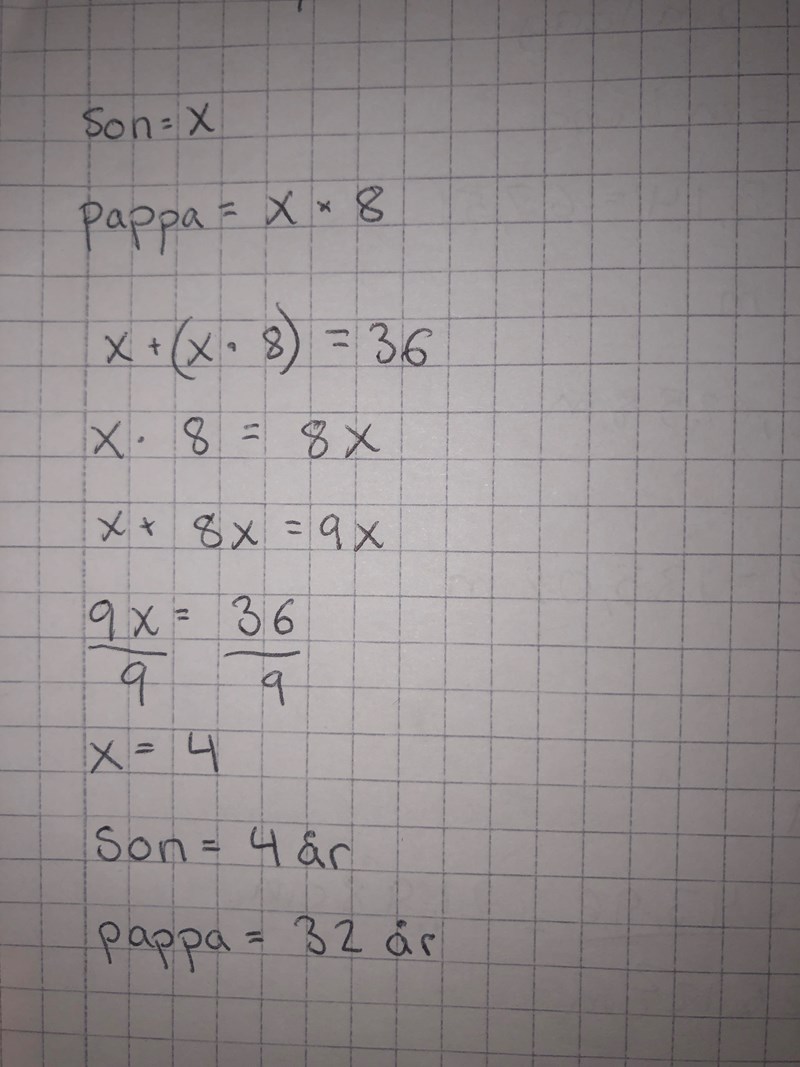 son = x
pappa = x × 8
x + (x · 8) = 36
x · 8 = 8x
x + 8x = 9x
9x = 36
9 9
x = 4
son = 4 år
pappa = 32 år